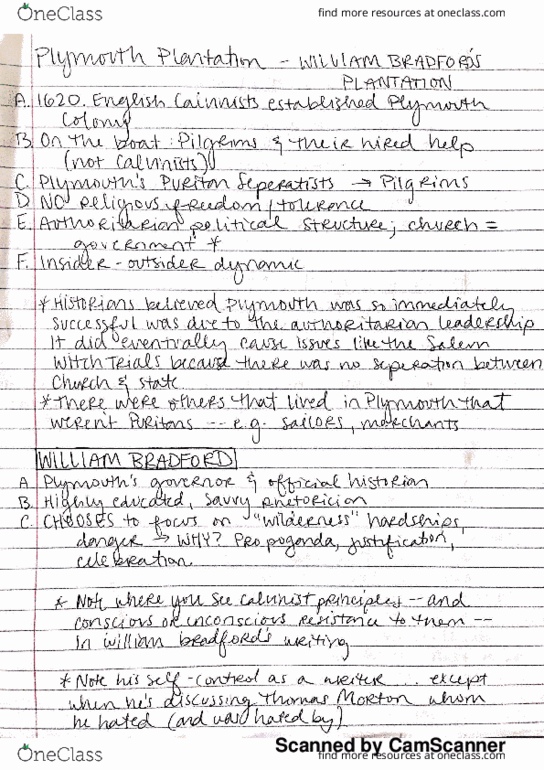 OneClass
find more resources at oneclass.com
Plymouth Plantation - WILLIAM BRADFORD'S
PLANTATION
A. 1620. English Calvinists established Plymouth
Colony
B. On the boat: Pilgrims & their hired help
(not Calvinists)
C. Plymouth's Puritan Seperatists → Pilgrims
D. NO religious freedom/tolerance
E. Authoritarian political structure; church =
government *
F. Insider-outsider dynamic
* Historians believed Plymouth was so immediately
successful was due to the authoritarian leadership
It did eventually cause issues like the Salem
Witch Trials because there was no seperation between
Church & state
* There were others that lived in Plymouth that
weren't Puritans -- e.g. sailors, merchants
WILLIAM BRADFORD
A Plymouth's governor & official historian
B. Highly educated, savvy rhetoricion
C. CHOOSES to focus on "wilderness" hardships,
danger → WHY? Propoganda, justification,
celebration
* Note where you see calvinist principles -- and
conscious or unconscious resistance to them --
in William bradford's writing
* Note his self-control as a writer... except
when he's discussing Thomas Morton whom
he hated (and was hated by)
Scanned by CamScanner
OneClass
find more resources at oneclass.com